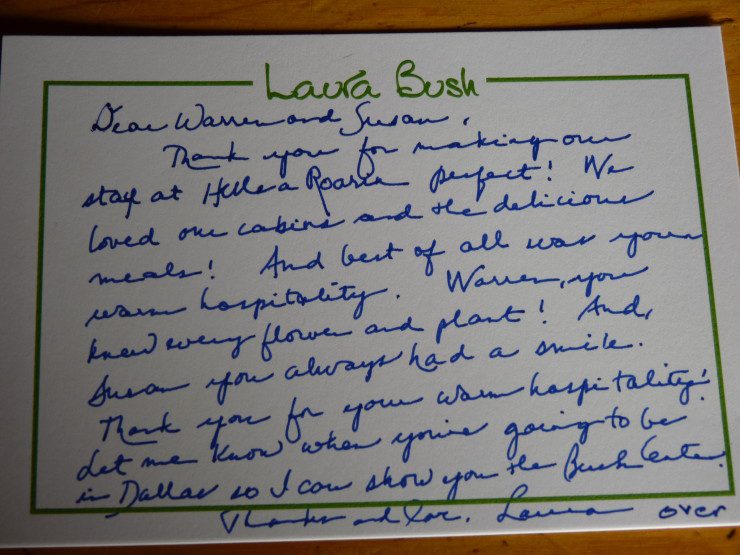 Laura Bush
Dear Warren and Susan,
Thank you for making our
stay at Hell's a Roarin perfect! We
loved our cabins and the delicious
meals! And best of all was your
warm hospitality. Warren, you
knew every flower and plant! And,
Susan you always had a smile.
Thank you for your warm hospitality!
Let me know when you're going to be
in Dallas so I can show you the Bush Center.
Thanks and love, Laura over